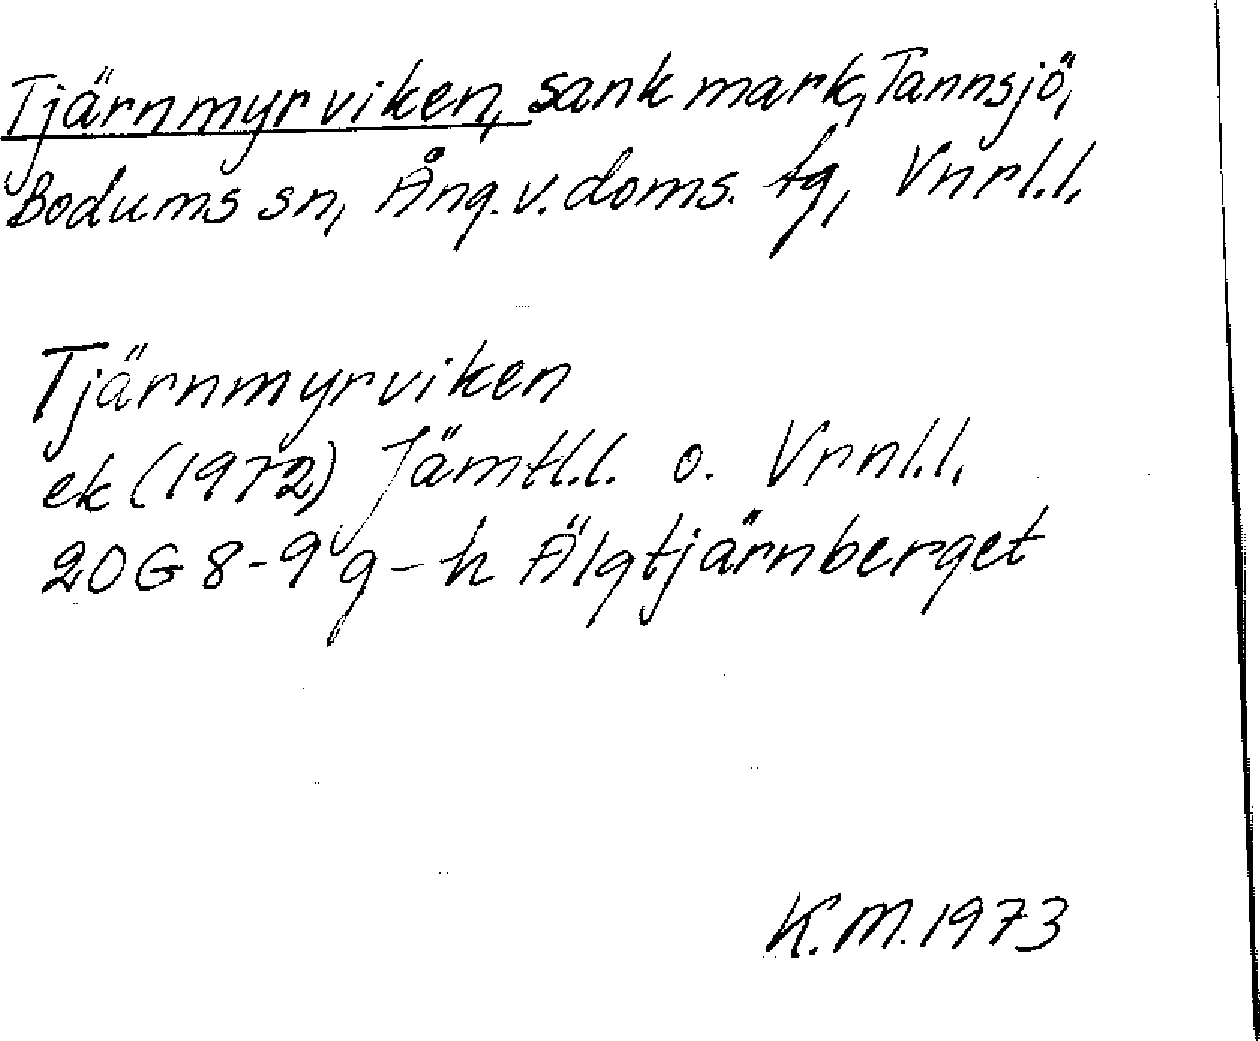 Tjärnmyrviken, sank mark, Tannsjö,
Bodums sn, Ång. v. doms. tg, Vnrl.l.
Tjärnmyrviken
ek (1972) Jämtl.l. o. Vrnl.l.
20G 8-9 g-h Älgtjärnberget
K.M. 1973